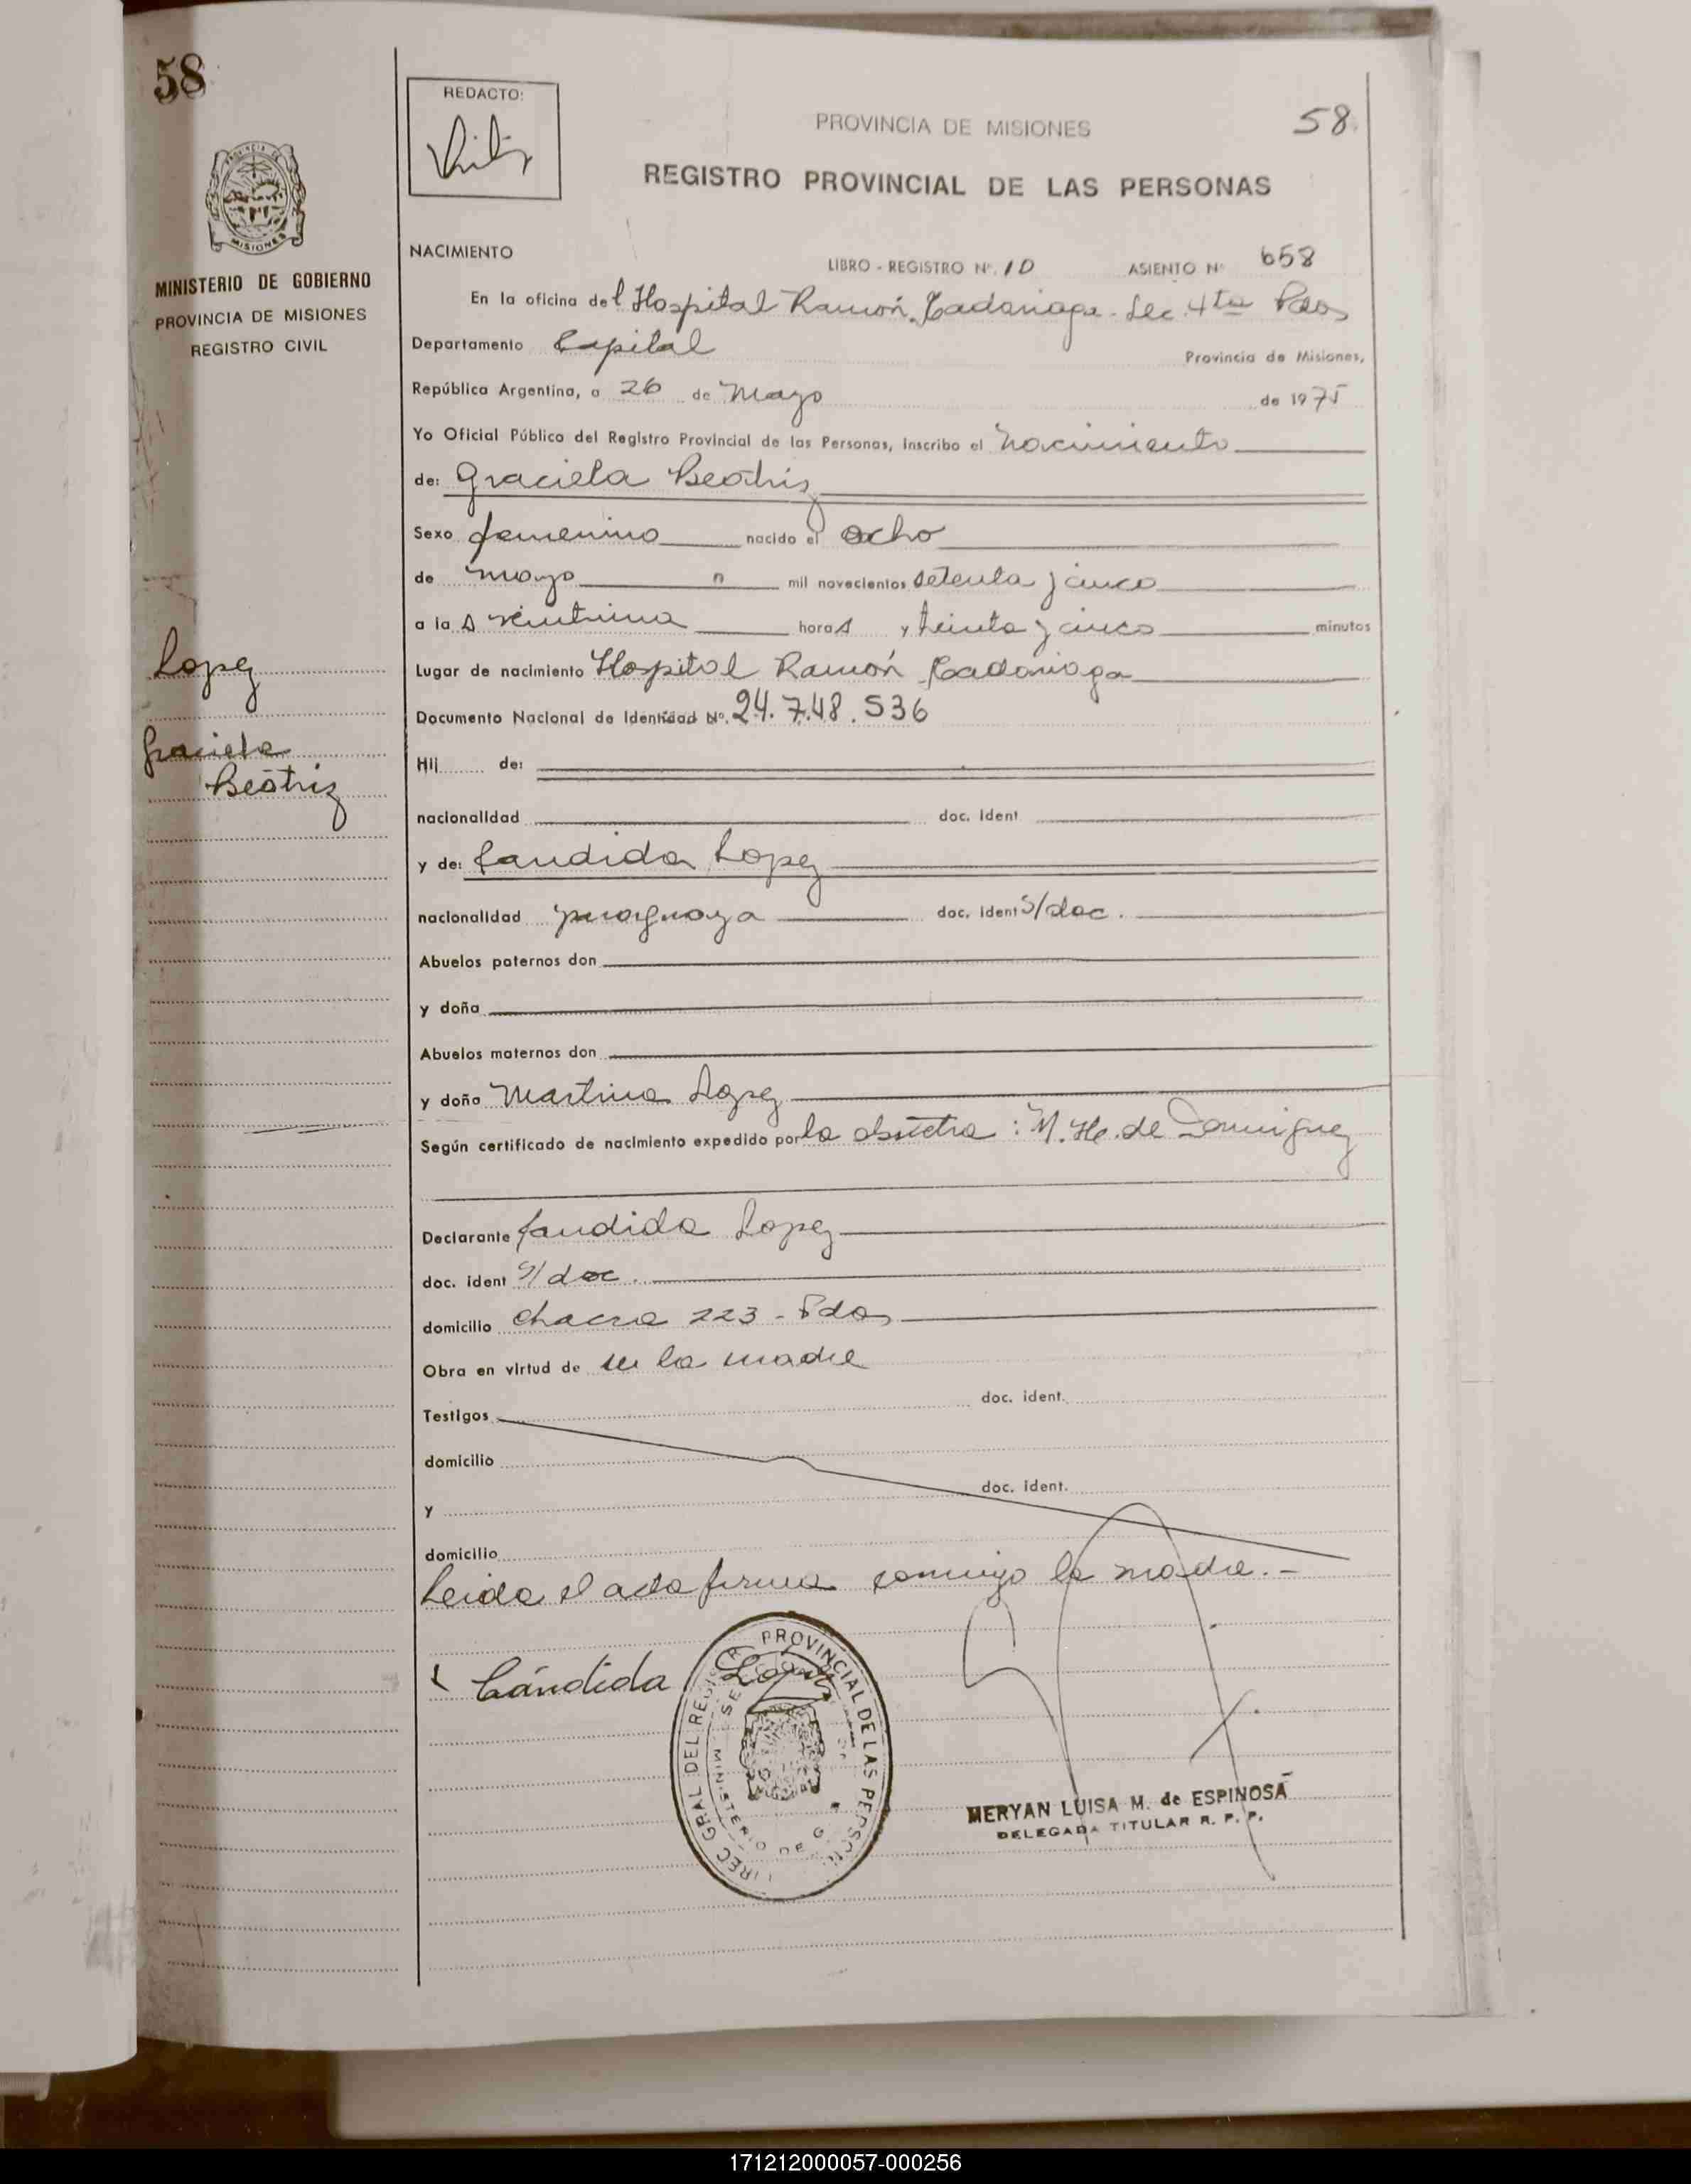 58
REDACTO:
PROVINCIA DE MISIONES
58
REGISTRO PROVINCIAL DE LAS PERSONAS
MISIONES
MINISTERIO DE GOBIERNO
PROVINCIA DE MISIONES
REGISTRO CIVIL
NACIMIENTO
LIBRO - REGISTRO Nº. 10 ASIENTO Nº 658
En la oficina del Hospital Ramón Madariaga - Sec. 4ta Pdas
Departamento Capital Provincia de Misiones,
República Argentina, a 26 de Mayo de 1975
Yo Oficial Público del Registro Provincial de las Personas, inscribo el nacimiento
de: Graciela Beatriz
Sexo femenino nacido el ocho
de mayo mil novecientos setenta y cinco
a las veintiuna horas y treinta y cinco minutos
Lugar de nacimiento Hospital Ramón Madariaga
Documento Nacional de Identidad Nº. 24.748.536
Lopez
Graciela
Beatriz
Hij de:
nacionalidad doc. ident
y de: Candida Lopez
nacionalidad paraguaya doc. ident s/doc.
Abuelos paternos don
y doña
Abuelos maternos don
y doña Martina Lopez
Según certificado de nacimiento expedido por la obstetra: M. He. de Dominguez
Declarante Candida Lopez
doc. ident s/doc.
domicilio chacra 223 - Pdas
Obra en virtud de ser la madre
Testigos doc. ident.
domicilio
y doc. ident.
domicilio
Leida el acta firma conmigo la madre.-
Cándida Lopez
PROVINCIAL DE LAS PERSON
MINISTERIO DE G
MERYAN LUISA M. de ESPINOSA
DELEGADA TITULAR R. P. P.
171212000057-000256